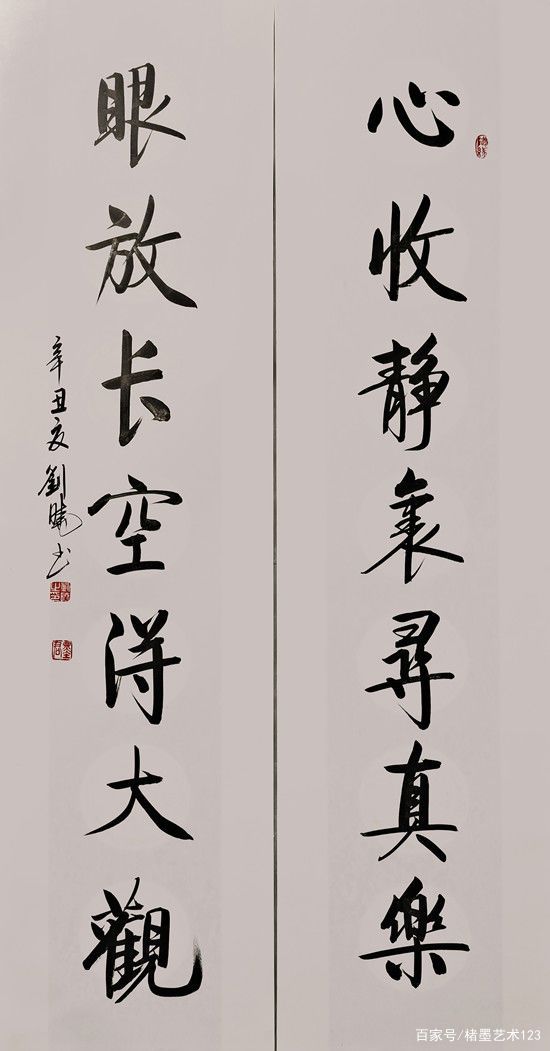 心收静裏尋真樂
眼放长空得大觀
辛丑夏劉曉书
百家号/楮墨艺术123